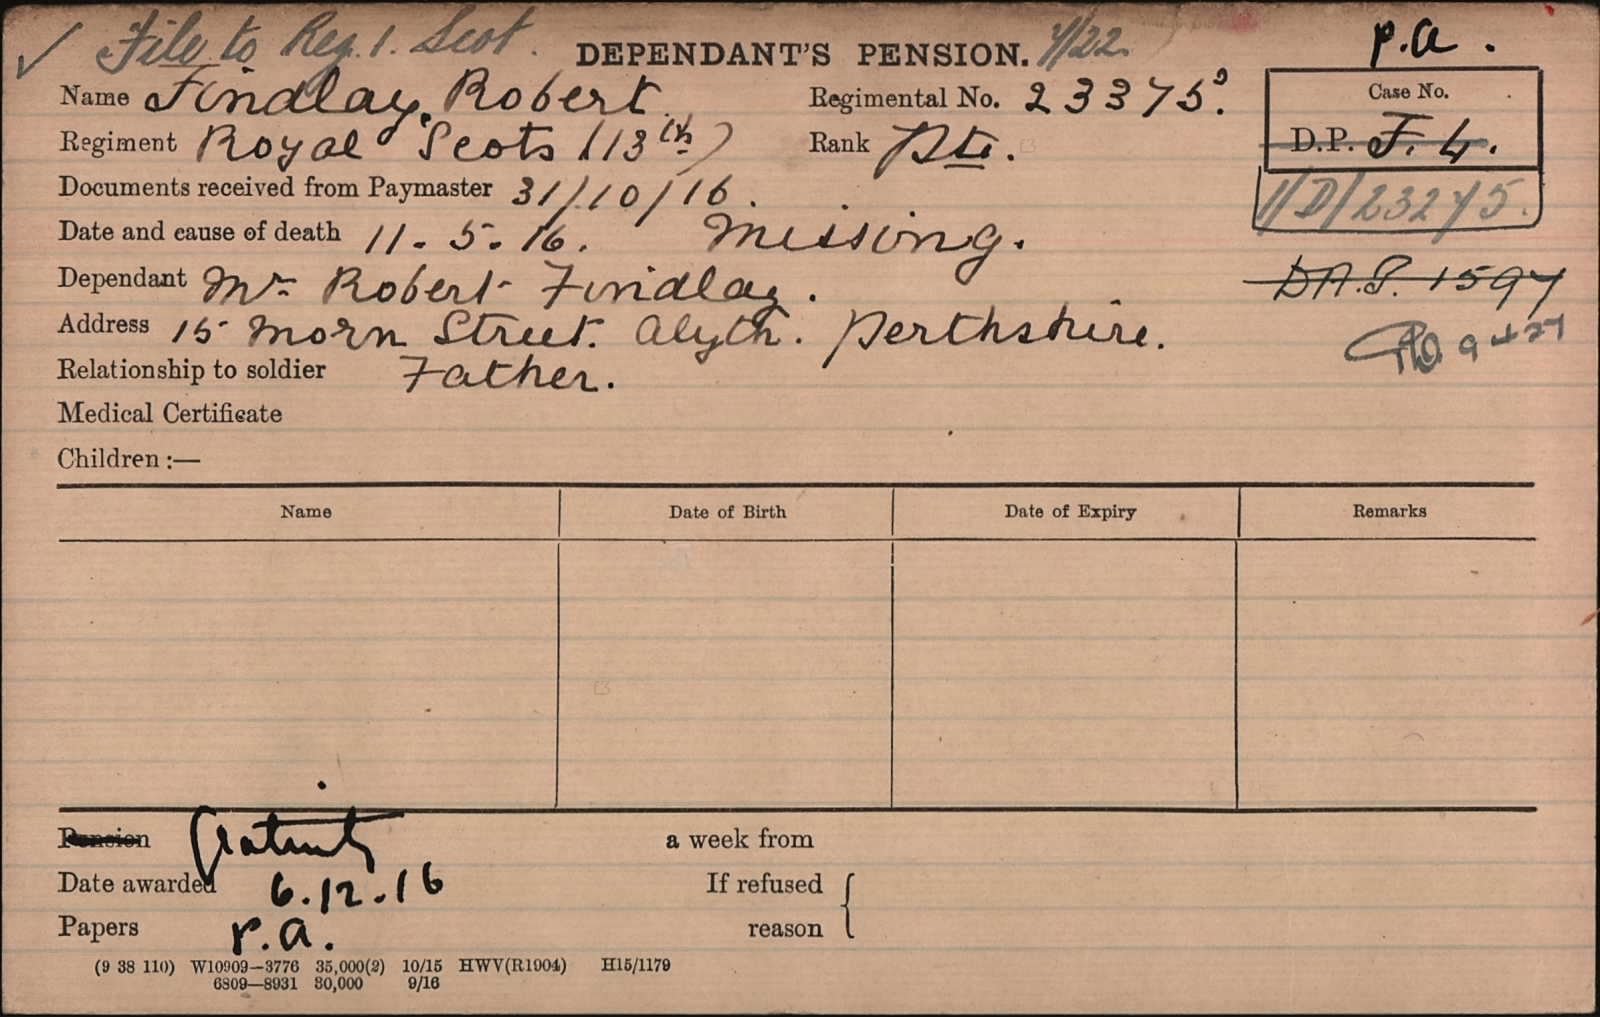 ✓ File to Reg. 1. Scot. DEPENDANT'S PENSION. 4/22. P.A.
Name Findlay, Robert. Regimental No. 23375. Case No.
Regiment Royal Scots (13th) Rank Pte. D.P. F. 4.
Documents received from Paymaster 31/10/16. 1/D/23275.
Date and cause of death 11. 5. 16. Missing.
Dependant Mr Robert Findlay. D.A.P. 1597
Address 15 Morn Street. Alyth. Perthshire.
Relationship to soldier Father.
Medical Certificate
Children :—
Name Date of Birth Date of Expiry Remarks
Pension Gratuity a week from
Date awarded 6.12.16 If refused
Papers P.A. reason
(9 38 110) W10909—3776 35,000(2) 10/15 HWV(R1904) H15/1179
6809—8931 30,000 9/16